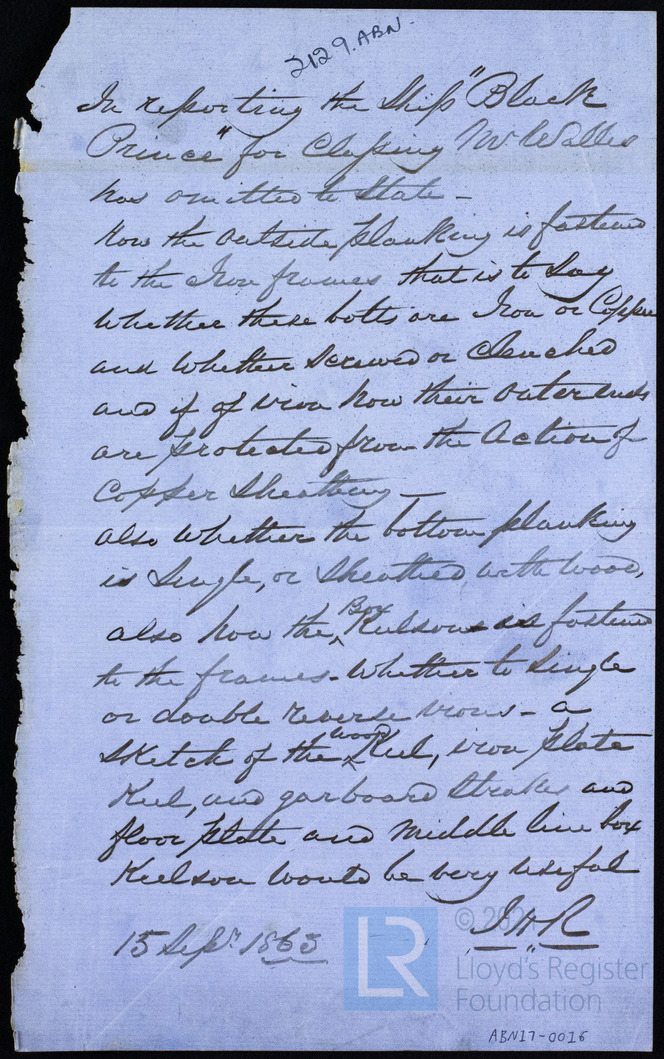 2129.ABN.
In reporting the Ship "Black
Prince" for Classing Mr Walles
has omitted to State -
how the outside planking is fastened
to the Iron frames that is to Say
Whether these bolts are Iron or Copper
and whether Screwed or Clenched
and if of iron how their outer ends
are protected from the Action of
Copper Sheathing -
also whether the bottom planking
is Single, or Sheathed with wood,
also how the Box Keelson is fastened
to the frames - Whether to Single
or double reverse irons - a
Sketch of the wood Keel, iron plate
Keel, and garboard Strakes and
floor plate and Middle line box
Keelson would be very useful
J.H.R
15 Sepr. 1863
LR
Lloyd's Register
Foundation
ABN17-0016